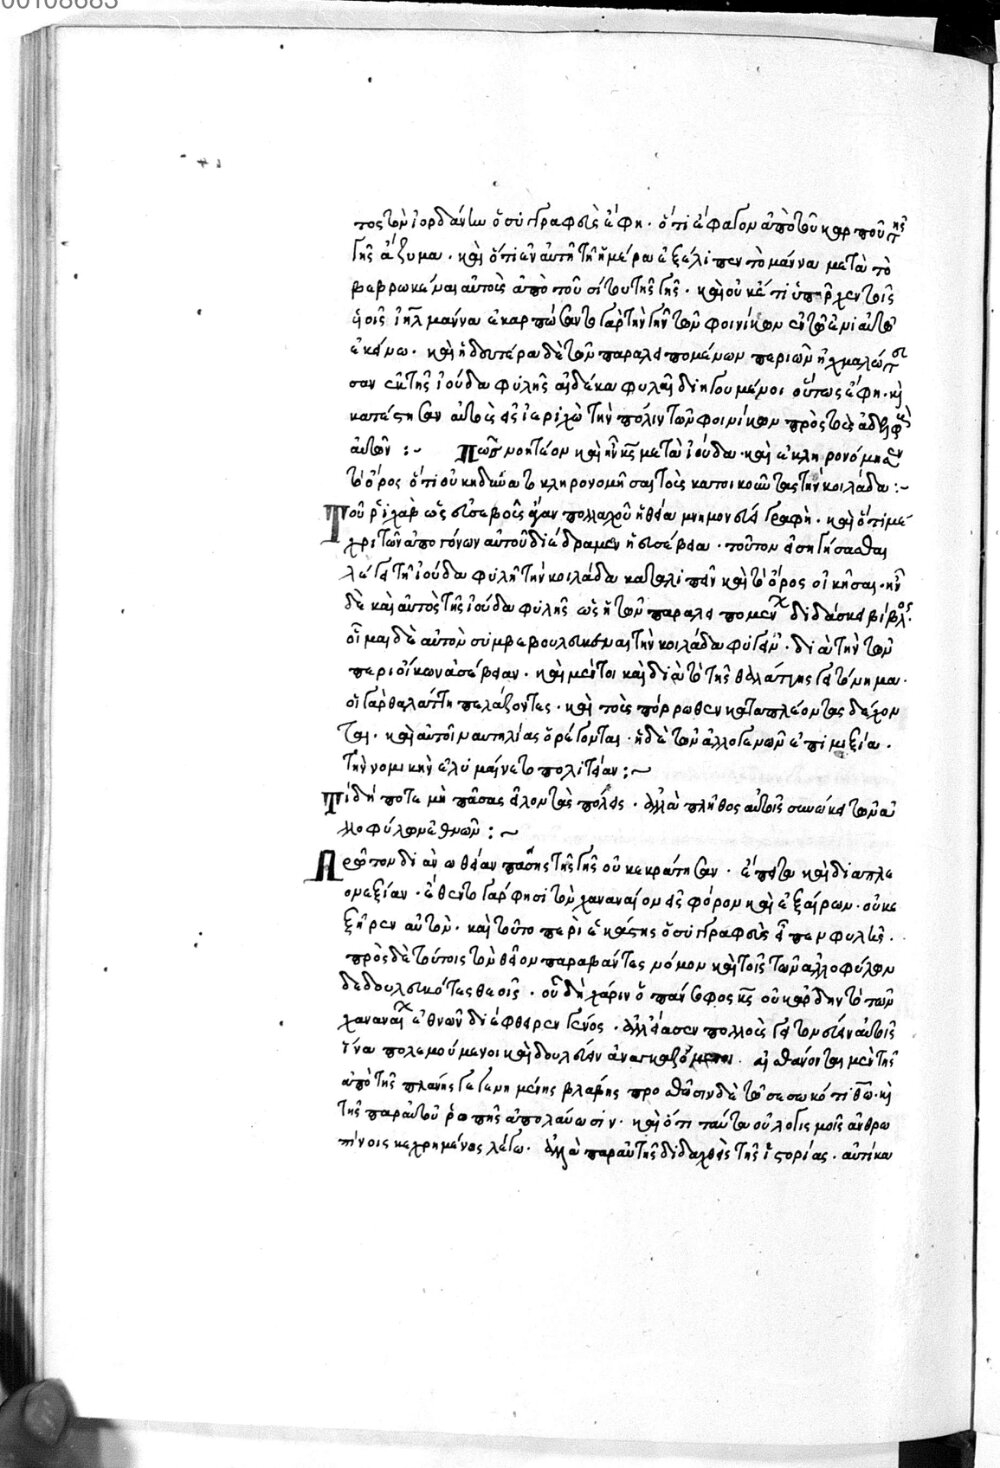 00108683
τος τὸν ἰορδάνην ὁ συγγραφεὺς ἔφη· ὅτι ἔφαγον ἀπὸ τοῦ καρποῦ τῆς
γῆς ἄζυμα· καὶ ὅτι ἐν αὐτῇ τῇ ἡμέρα ἐξέλιπεν τὸ μάννα μετὰ τὸ
βεβρωκέναι αὐτοὺς ἀπὸ τοῦ σίτου τῆς γῆς· καὶ οὐκέτι ὑπῆρχεν τοῖς
υἱοῖς ἰηλ μάννα ἐκαρπώσαντο γὰρ τὴν γῆν τῶν φοινίκων ἐν τῶ ἐνιαυτῶ
ἐκείνω· καὶ ἡ δευτέρα δὲ τῶν παραλειπομένων περὶ ὧν ἠχμαλώτευ
σαν ἐκ τῆς ἰούδα φύλῆς αἱ δέκα φυλαὶ διηγουμένοι οὕτως ἔφη· κὶ
κατέστησαν αὐτοὺς εἰς ἱεριχὼ τὴν πόλιν τῶν φοινίκων πρὸς τοὺς ἀδελφοὺς
αὐτῶν :- Πῶς νοητέον καὶ ἦν κς μετὰ ἰούδα· καὶ ἐκληρονόμησεν
τὸ ὄρος ὅτι οὐκ ἠδύνατο κληρονομῆσαι τοὺς κατοικοῦντας τὴν κοιλάδα :~
Τοῦ χαλὲβ ὡς εὐσεβοῦς ἄγαν πολλαχοῦ ἡ θεία μνημονεύει γραφὴ· καὶ ὅτι μέ
χρι τῶν ἀπογόνων αὐτοῦ διέδραμεν ἡ εὐσέβεια· τοῦτον εἰσηγήσασθαι
λέγει τῇ ἰούδα φυλῇ τὴν κοιλάδα καταλιπεῖν καὶ τὸ ὄρος οἰκῆσαι· ἦν
δὲ καὶ αὐτὸς τῆς ἰούδα φύλῆς ὡς ἡ τῶν παραλειπομένων διδάσκει βίβλος·
οἶμαι δὲ αὐτὸν συμβεβουλευκέναι τὴν κοιλάδα φύγεῖν· διὰ τὴν τῶν
περιοίκων ἀσέβειαν· καὶ μέντοι καὶ διὰ τὸ τῆς θαλάττης γειτόνημα·
οἱ γὰρ θαλάττη πελάζοντες· καὶ τοὺς πόρρωθεν καταπλέοντας δέχον
ται· καὶ αὐτοὶ ναυτηλίας ὀρέγονται· ἡ δὲ τῶν ἀλλογενῶν ἐπιμιξία·
τὴν νομικὴν ἐλυμαίνετο πολιτείαν :~
Τί δή ποτε μὴ πάσας εἷλον τὰς πόλεις· ἀλλὰ πλῆθος αὐτοῖς συνώκει τῶν ἀ
λλοφύλων ἐθνῶν : ~
Πρῶτον διὰ νωθείαν πάσης τῆς γῆς οὐκ ἐκράτησαν· ἔπειτα καὶ διὰ πλε
ονεξίαν· ἔθεντο γάρ φησι τὸν χαναναίον εἰς φόρον καὶ ἐξαίρων· οὐκ ἐ
ξῆρεν αὐτὸν· καὶ τοῦτο περὶ ἑκάστης ὁ συγγραφεὺς εἶπεν φυλῆς·
πρὸς δὲ τούτοις τὸν θεῖον παραβάντες νόμον καὶ τοῖς τῶν ἀλλοφύλων
δεδουλευκότες θεοῖς· οὗ δὴ χάριν ὁ πάνσοφος κς οὐκ ἄρδην τὸ τῶν
χαναναίων ἐθνῶν διέφθειρεν γένος· ἀλλ' εἴασεν πολλοὺς γειτονεύειν αὐτοῖς
ἵνα πολεμούμενοι καὶ δουλεύειν ἀναγκαζόμενοι αἰσθάνονται μὲν τῆς
ἀπὸ τῆς πλάνης γεγενημένης βλάβης προσθῶσιν δὲ τῶ σεσωκότι θω· κὶ
τῆς παρ' αὐτοῦ ῥοπῆς ἀπολαύωσιν· καὶ ὅτι ταῦτα οὐ λογισμοῖς ἀνθρω
πίνοις κεχρημένος λέγω· ἀλλὰ παρ' αὐτῆς διδαχθεὶς τῆς ἱστορίας· αὐτίκα